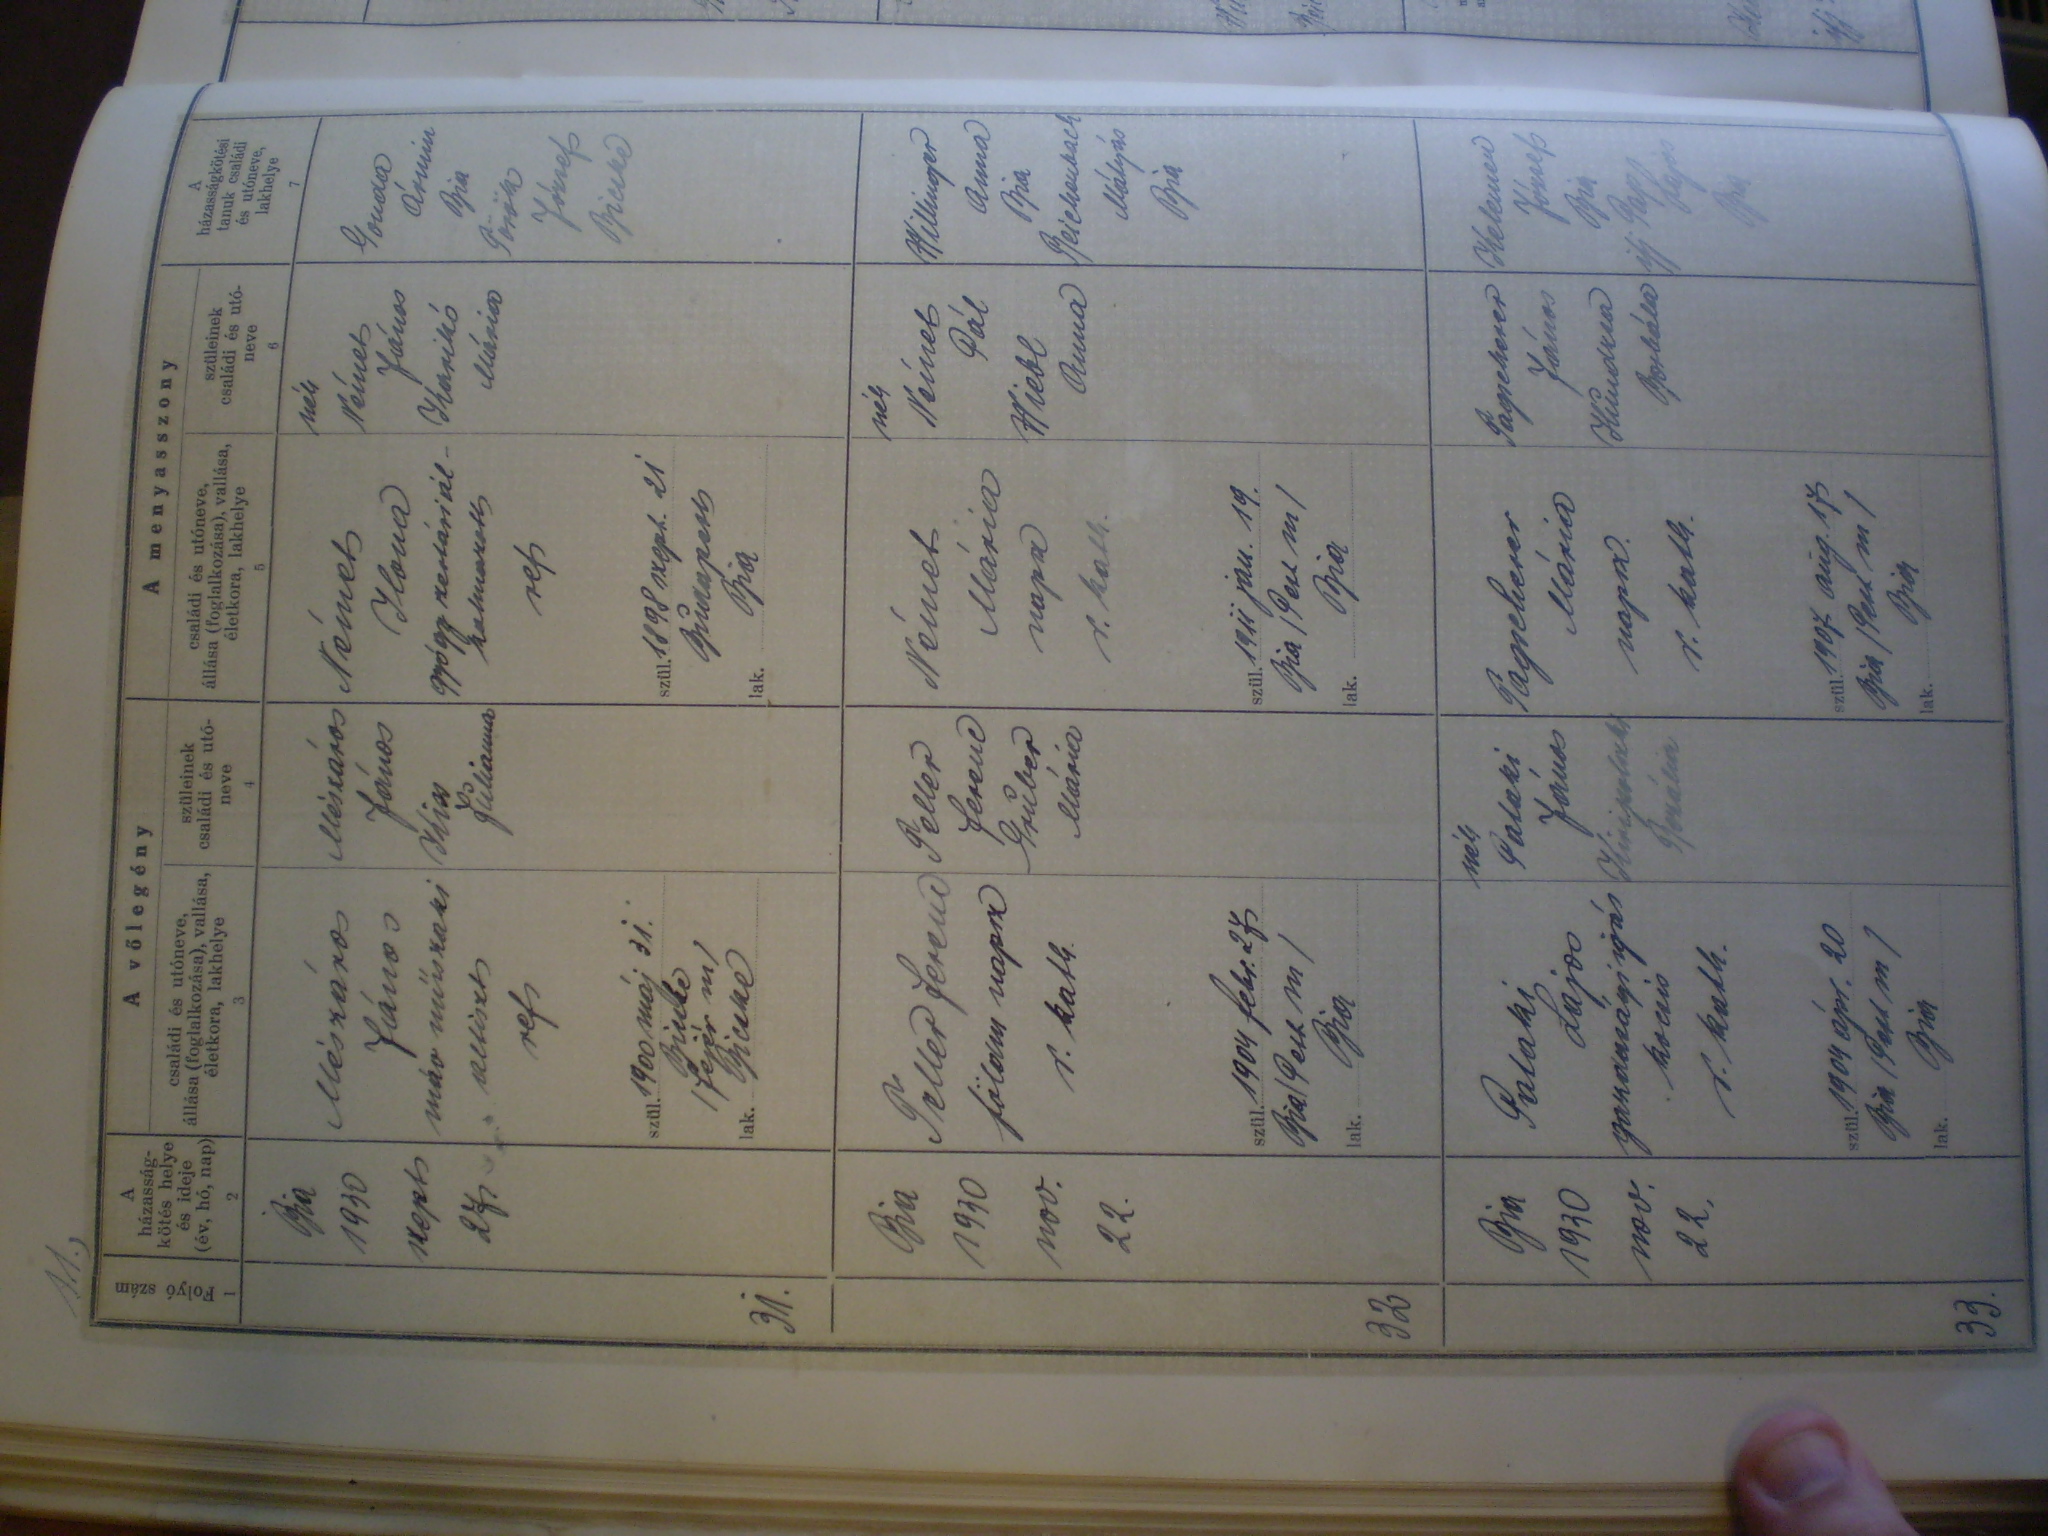 11.
A völegény
A menyasszony
Folyó-
szám
A
házasság-
kötés helye
és ideje
(év, hó, nap)
családi és utóneve,
állása (foglalkozása), vallása,
életkora, lakhelye
szüleinek
családi és utó-
neve
családi és utóneve,
állása (foglalkozása), vallása,
életkora, lakhelye
szüleinek
családi és utó-
neve
A
házasságkötési
tanuk családi
és utóneve,
lakhelye
1
2
3
4
5
6
7
31.
Bia
1930
szept
27
Mészáros
János
máv műszaki
altiszt
ref
szül. 1900 máj 31.
Bicske
/Fejér m/
lak. Bicske
Mészáros
János
Kiss
Julianna
Német
Ilona
gyógyszertári al-
kalmazott
ref
szül. 1898 szept. 21
Budapest
lak. Bia
néh
Német
János
Mária
Gonda
Ármin
Bia
Török
József
Bicske
32
Bia
1930
nov.
22.
Peller Ferenc
földm naps
r. kath.
szül. 1904 febr. 27
Bia /Pest m/
lak. Bia
Peller
Ferenc
Gruber
Mária
Német
Mária
naps
r. kath.
szül. 1911 jan. 19.
Bia /Pest m/
lak. Bia
néh
Német
Pál
Anna
Willinger
Anna
Bia
Reichenbach
Mátyás
Bia
33.
Bia
1930
nov.
22.
Pataki
Lajos
gazdasági igás
kocsis
r. kath.
szül. 1904 ápr. 20
Bia /Pest m/
lak. Bia
néh
Pataki
János
Mária
naps.
r. kath.
szül. 1907 aug. 17
Bia /Pest m/
lak. Bia
János
Borbála
Kelemen
József
Bia
ifj Papp
Lajos
Bia